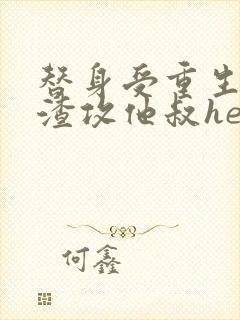 替身受重生
渣攻他叔he
何鑫